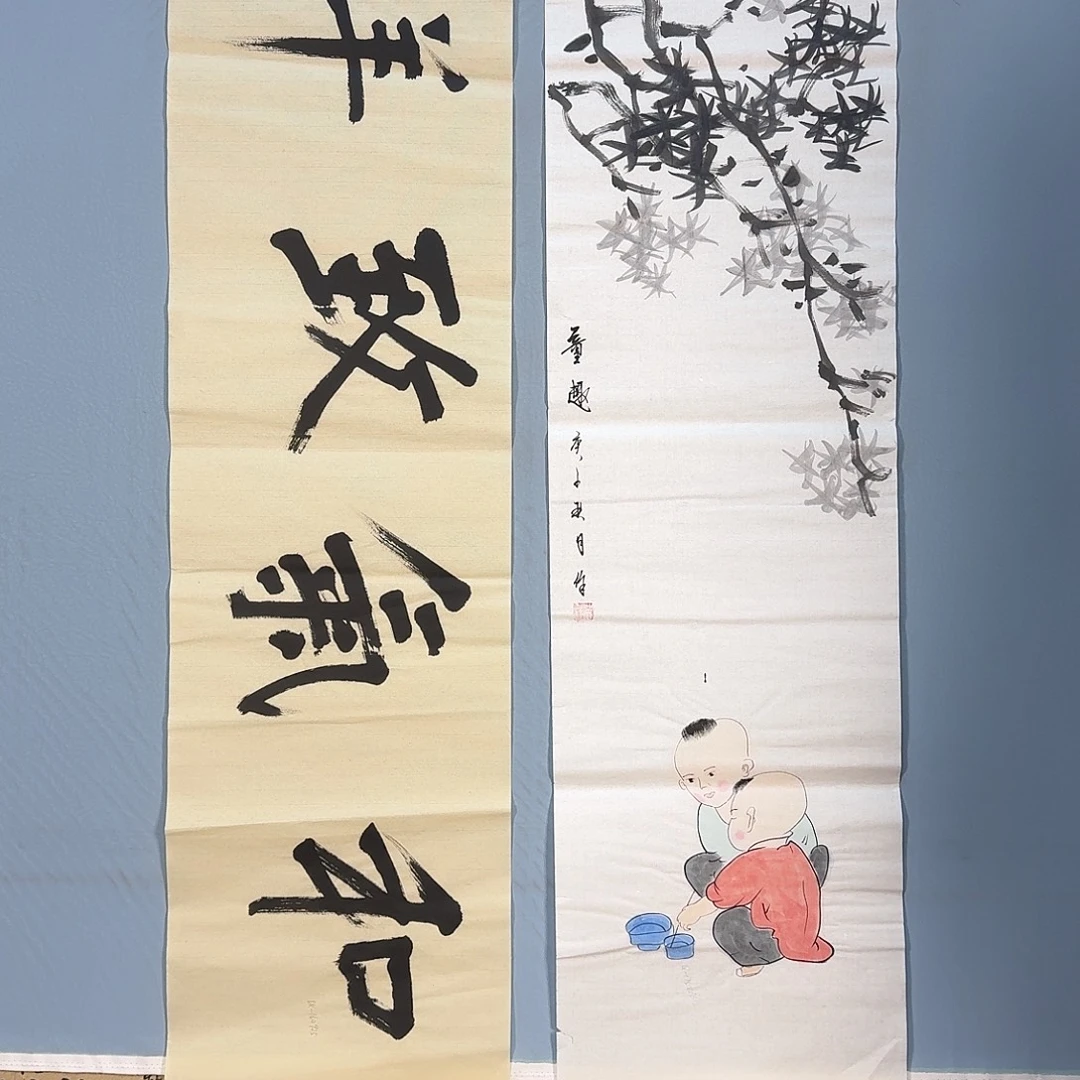 和氣致祥
童趣 庚子秋月作